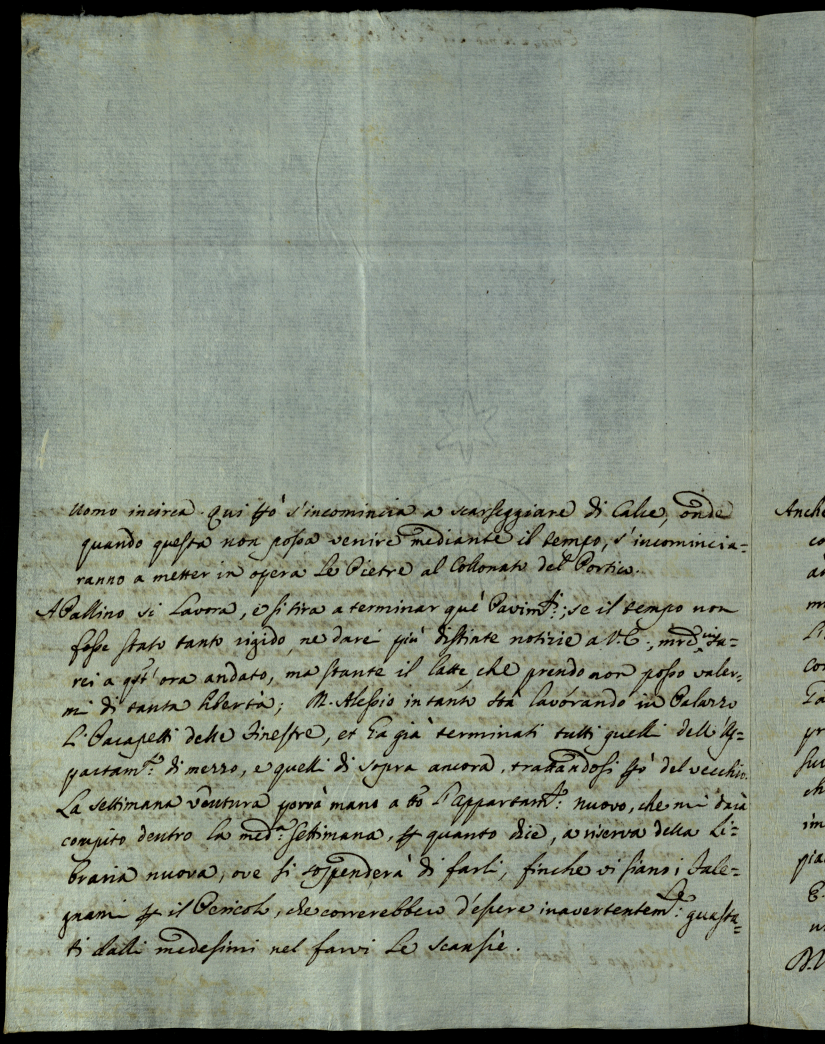 uomo incirca. Qui però s'incomincia a scarseggiare di Calce, onde
quando questa non possa venire mediante il tempo, s'incomincia=
ranno a metter in opera le Pietre al Collonato del Portico.
A Pallino si lavora, e si tira a terminar que' Pavim.ti; se il tempo non
fosse stato tanto rigido, ne darei più distinte notizie a V.E.,
rei a quest'ora andato, ma stante il latte, che prendo non posso valer=
mi di tanta libertà; M. Alessio in tanto sta lavorando in Palazzo
li Parapetti delle Finestre, et ha già terminati tutti quelli dell'Ap=
partam.to di mezzo, e quelli di sopra ancora, trattandosi però del vecchio.
La settimana ventura porrà mano a tto l'appartam.to: nuovo, che mi darà
compito dentro la med.a settimana, per quanto dice, a riserva della Li=
braria nuova, ove si sospenderà di farli, finche vi siano i Fale=
gnami per il Pericolo, che correrebbero d'essere inavertentem.te: guasta=
ti dalli medesimi nel farvi le scansie.
Anche
co